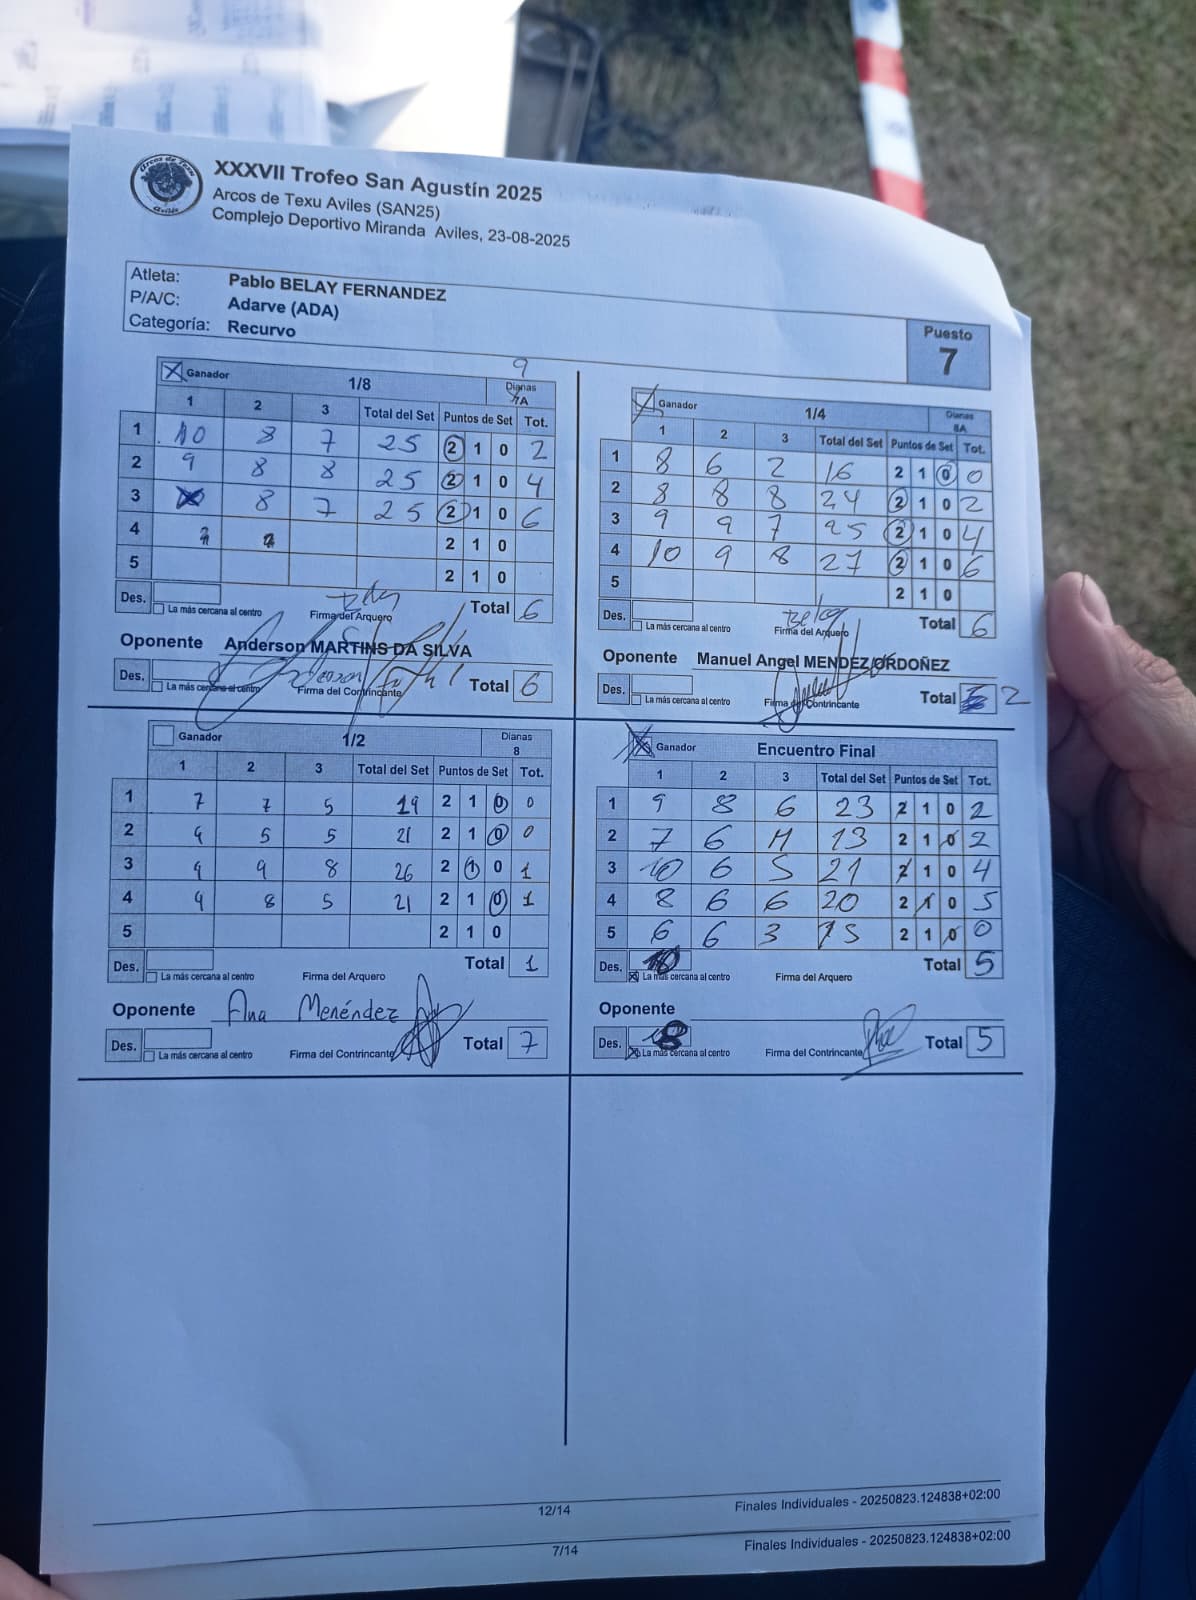 XXXVII Trofeo San Agustín 2025
Arcos de Texu Aviles (SAN25)
Complejo Deportivo Miranda Aviles, 23-08-2025
Atleta: Pablo BELAY FERNANDEZ
P/A/C: Adarve (ADA)
Categoría: Recurvo
Puesto
7
9
Ganador 1/8 Dianas
1 2 3 Total del Set Puntos de Set Tot.
1 10 8 7 25 2 1 0 2
2 9 8 8 25 2 1 0 4
3 8 7 25 2 1 0 6
4 2 1 0
5 2 1 0
Des. Total 6
La más cercana al centro Firma del Arquero
Oponente Anderson MARTINS DA SILVA
Des. Total 6
La más cercana al centro Firma del Contrincante
Ganador 1/4 Dianas
8A
1 2 3 Total del Set Puntos de Set Tot.
1 8 6 2 16 2 1 0 0
2 8 8 8 24 2 1 0 2
3 9 9 7 25 2 1 0 4
4 10 9 8 27 2 1 0 6
5 2 1 0
Des. Total 6
La más cercana al centro Firma del Arquero
Oponente Manuel Angel MENDEZ ORDOÑEZ
Des. Total 2
La más cercana al centro Firma del Contrincante
Ganador 1/2 Dianas
8
1 2 3 Total del Set Puntos de Set Tot.
1 7 7 5 19 2 1 0 0
2 5 5 21 2 1 0 0
3 9 9 8 26 2 1 0 1
4 8 5 21 2 1 0 1
5 2 1 0
Des. Total 1
La más cercana al centro Firma del Arquero
Oponente Ana Menéndez
Des. Total 7
La más cercana al centro Firma del Contrincante
Ganador Encuentro Final
1 2 3 Total del Set Puntos de Set Tot.
1 9 8 6 23 2 1 0 2
2 7 6 M 13 2 1 0 2
3 10 6 5 21 2 1 0 4
4 8 6 6 20 2 1 0 5
5 6 6 3 15 2 1 0 0
Des. Total 5
La más cercana al centro Firma del Arquero
Oponente
Des. Total 5
La más cercana al centro Firma del Contrincante
12/14 Finales Individuales - 20250823.124838+02:00
7/14 Finales Individuales - 20250823.124838+02:00